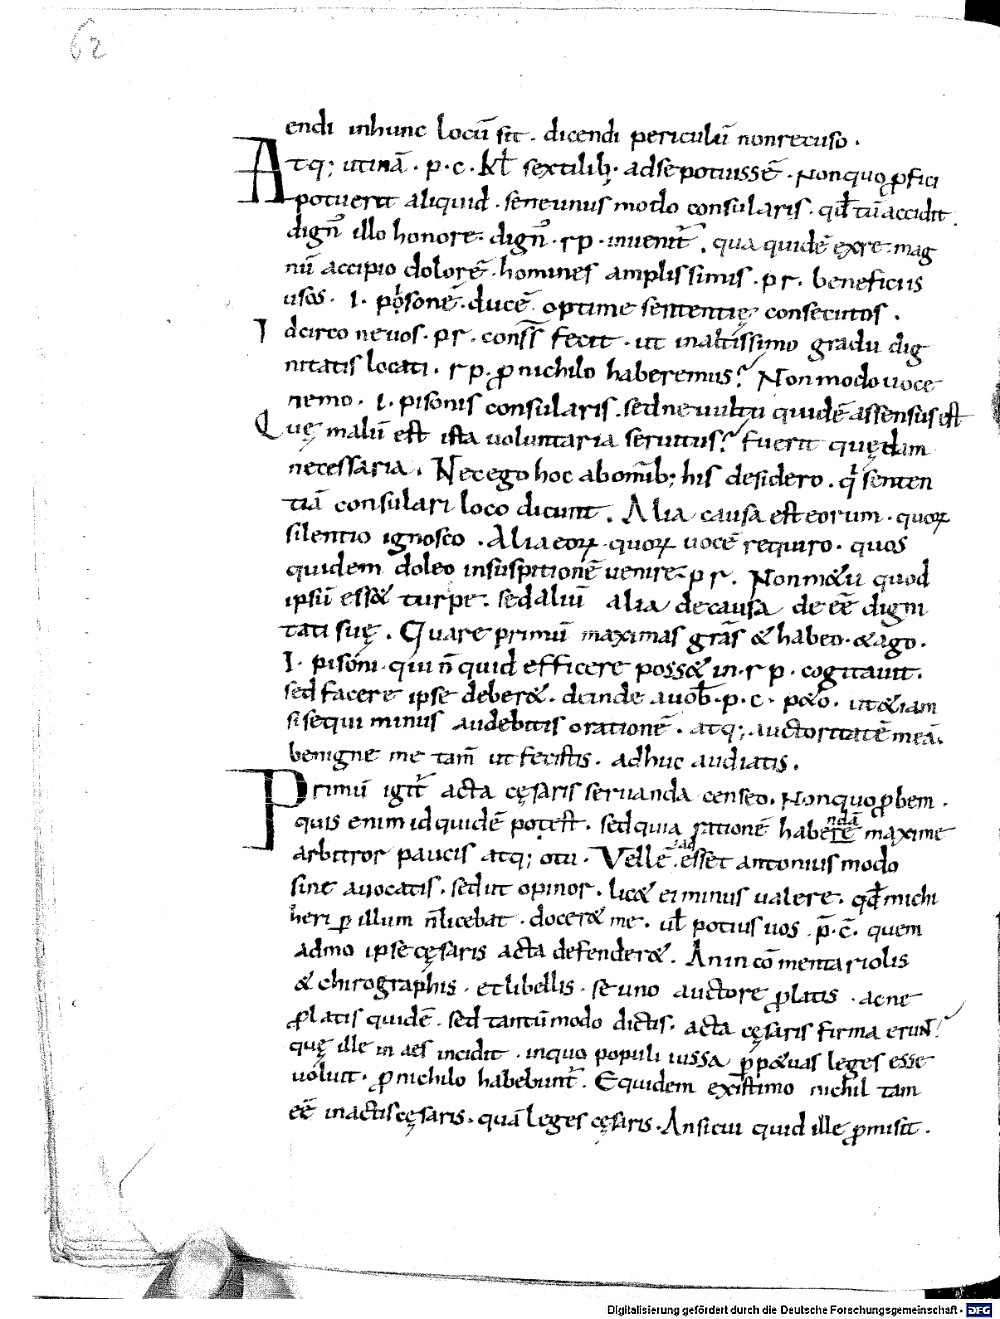 62
endi inhunc locū sit. dicendi periculū nonrecuso.
Atq; utinā. p. c. kł sextilib; adsepotuissē. Nonquo ꝓfici
potuerit aliquid. seneunus modo consularis. qđ tū accidit.
dignꝰ illo honore. dignꝰ. r p. inuenir̄. qua quidē exre. mag
nū accipio dolorē. homines amplissimis. p r. beneficiis
usos. l. pisonē. ducē optime sententię consecutos.
Idcirco neuos. p r. conss̄ fecit. ut inaltissimo gradu dig
nitatis locati. r p. ꝓ nichilo haberemus? Nonmodo uoce
nemo. l. pisonis consularis. sedneuultu quidē assensus est
Quę malū est ista uoluntaria seruitus? fuerit quędam
necessaria. Necego hoc abomīb; his desidero. qͥ senten
tiā consulari loco dicunt. Alia causa est eorum. quoꝝ
silentio ignosco. Alia eoꝝ. quoꝝ uocē requiro. quos
quidem doleo insuspitionē uenire. p r. Nonm&u quod
ipsū ess& turpe. sedaliū alia decausa deēē digni
tati suę. Quare primū maximas grās & habeo. & ago.
l. pisoni. qui n̄ quid efficere poss& in. r p. cogitauit.
sed facere ipse deber&. deinde auob̄. p. c. p&o. ut&iam
sisequi minus audebitis orationē. atq; auctoritatē meā.
benigne me tam̄ ut fecistis. adhuc audiatis.
Primū igit̄ acta cęsaris seruanda censeo. Nonquo ꝓbem.
quis enim idquidē potest. sedquia rationē habendā ēē maxime
arbitror pacis atq; otii. Vellē. adesset antonius modo
sine auocatis. sedut opinor. lic& ei minus ualere. qđ michi
heri ꝑ illum n̄licebat. docer& me. uł potius uos. p̄. c̄. quem
admo ipse cęsaris acta defender&. An in cōmentariolis
& chirographis. et libellis. se uno auctore ꝓlatis. acne
ꝓlatis quidē. sed tantūmodo dictis. acta cęsaris firma erunt?
quę ille in aes incidit. inquo populi iussa ꝑp&uas leges esse
uoluit. ꝓ nichilo habebunt̄. Equidem existimo nichil tam
ēē inactis cęsaris. quā leges cęsaris. An sicui quid ille ꝓmisit.
Digitalisierung gefördert durch die Deutsche Forschungsgemeinschaft - DFG